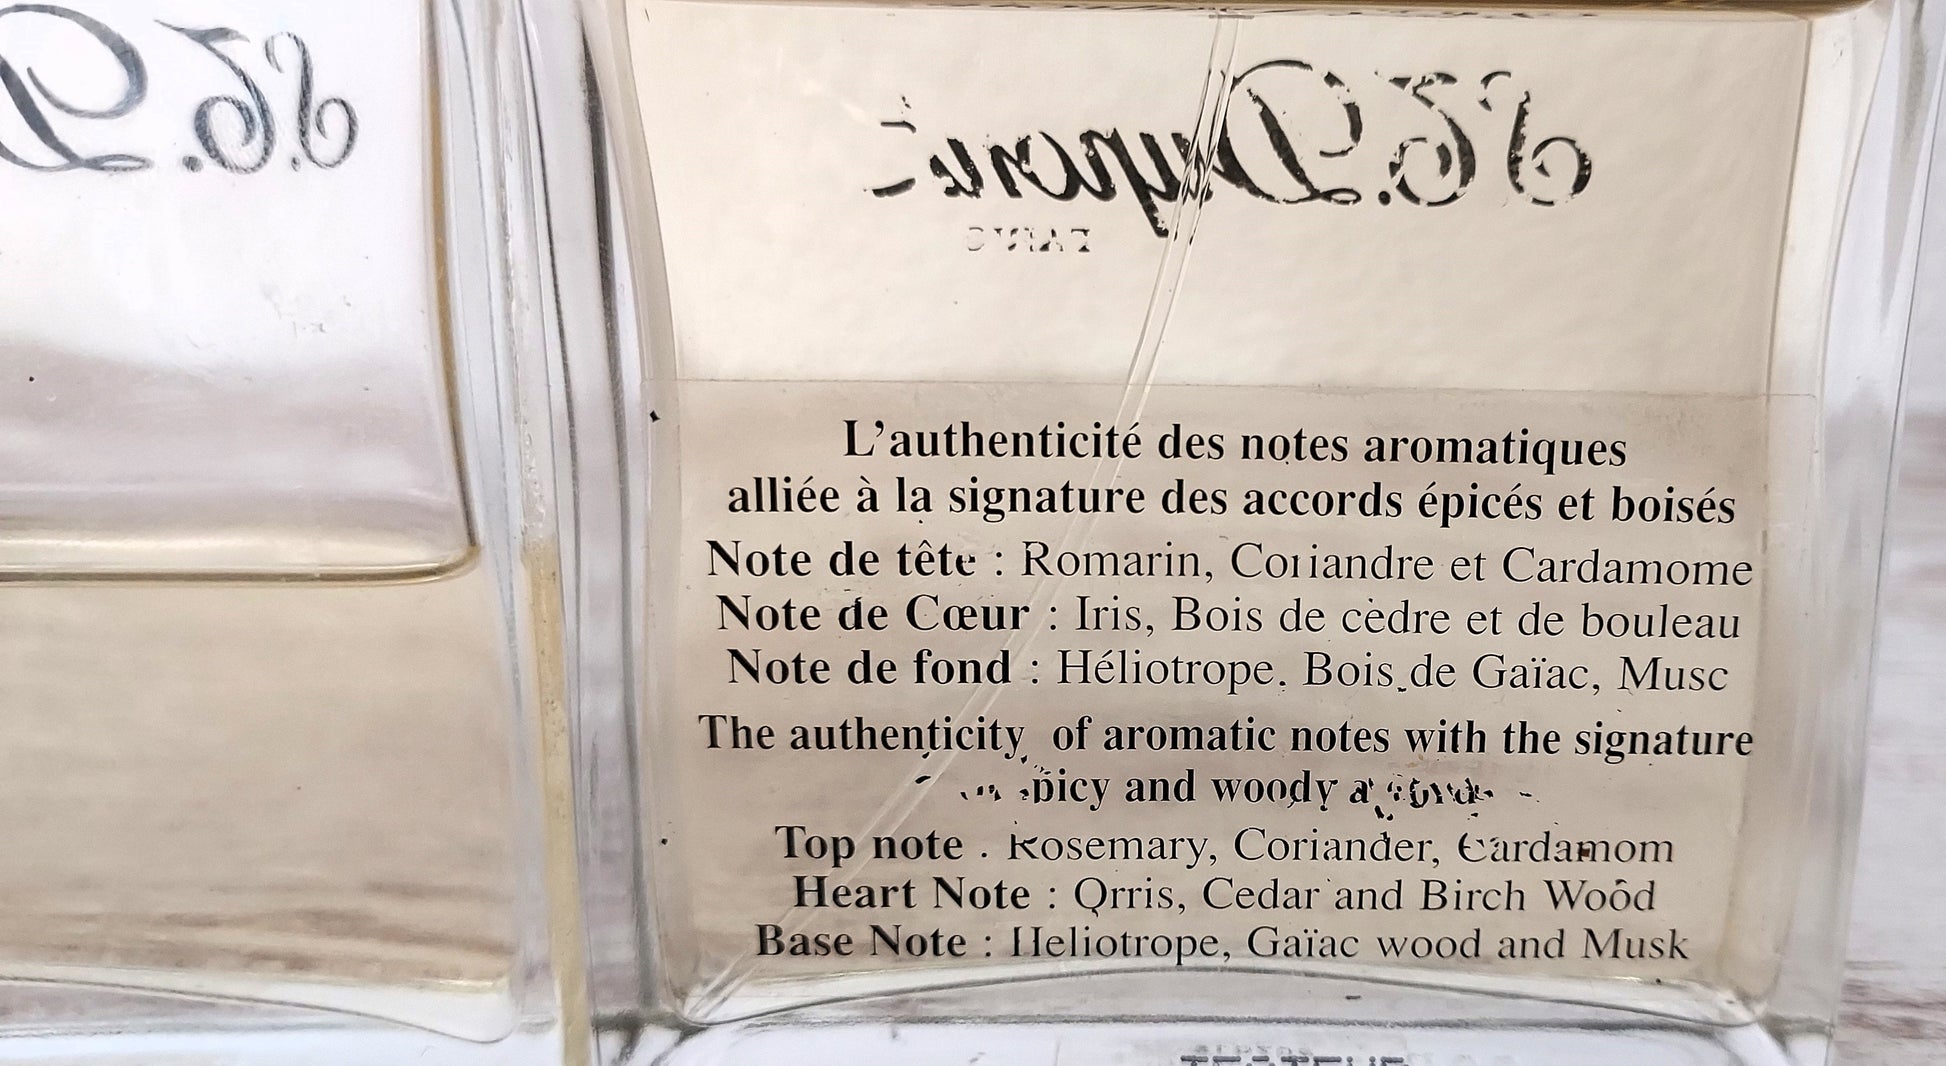 S.T. D
S.T. Dupont
PARIS
L’authenticité des notes aromatiques
alliée à la signature des accords épicés et boisés
Note de tête : Romarin, Coriandre et Cardamome
Note de Cœur : Iris, Bois de cèdre et de bouleau
Note de fond : Héliotrope, Bois de Gaïac, Musc
The authenticity of aromatic notes with the signature
spicy and woody accords
Top note : Rosemary, Coriander, Cardamom
Heart Note : Orris, Cedar and Birch Wood
Base Note : Heliotrope, Gaïac wood and Musk